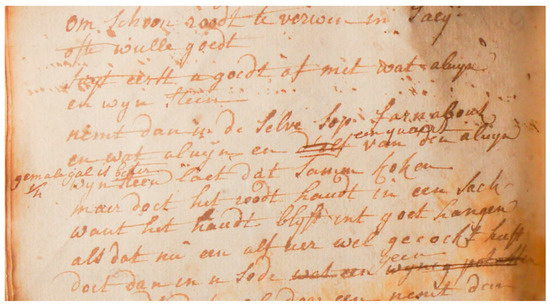 om schoon roodt te verwen in Saey
ofte wulle goedt
Siedt eerst u goedt of met wat aluyn
en wyn steen
nemt dan in de selve sop farnabout
en wat aluyn en half een quaert van den aluyn
gemale gal is beter
wyn steen laet dat samen koken
maer doet het rodt houdt in een sack
want het houdt blyft int goet hangen
als dat nu een alf uer wel gecocht heeft
doet dan in u sode wat een een wynig
nemt den